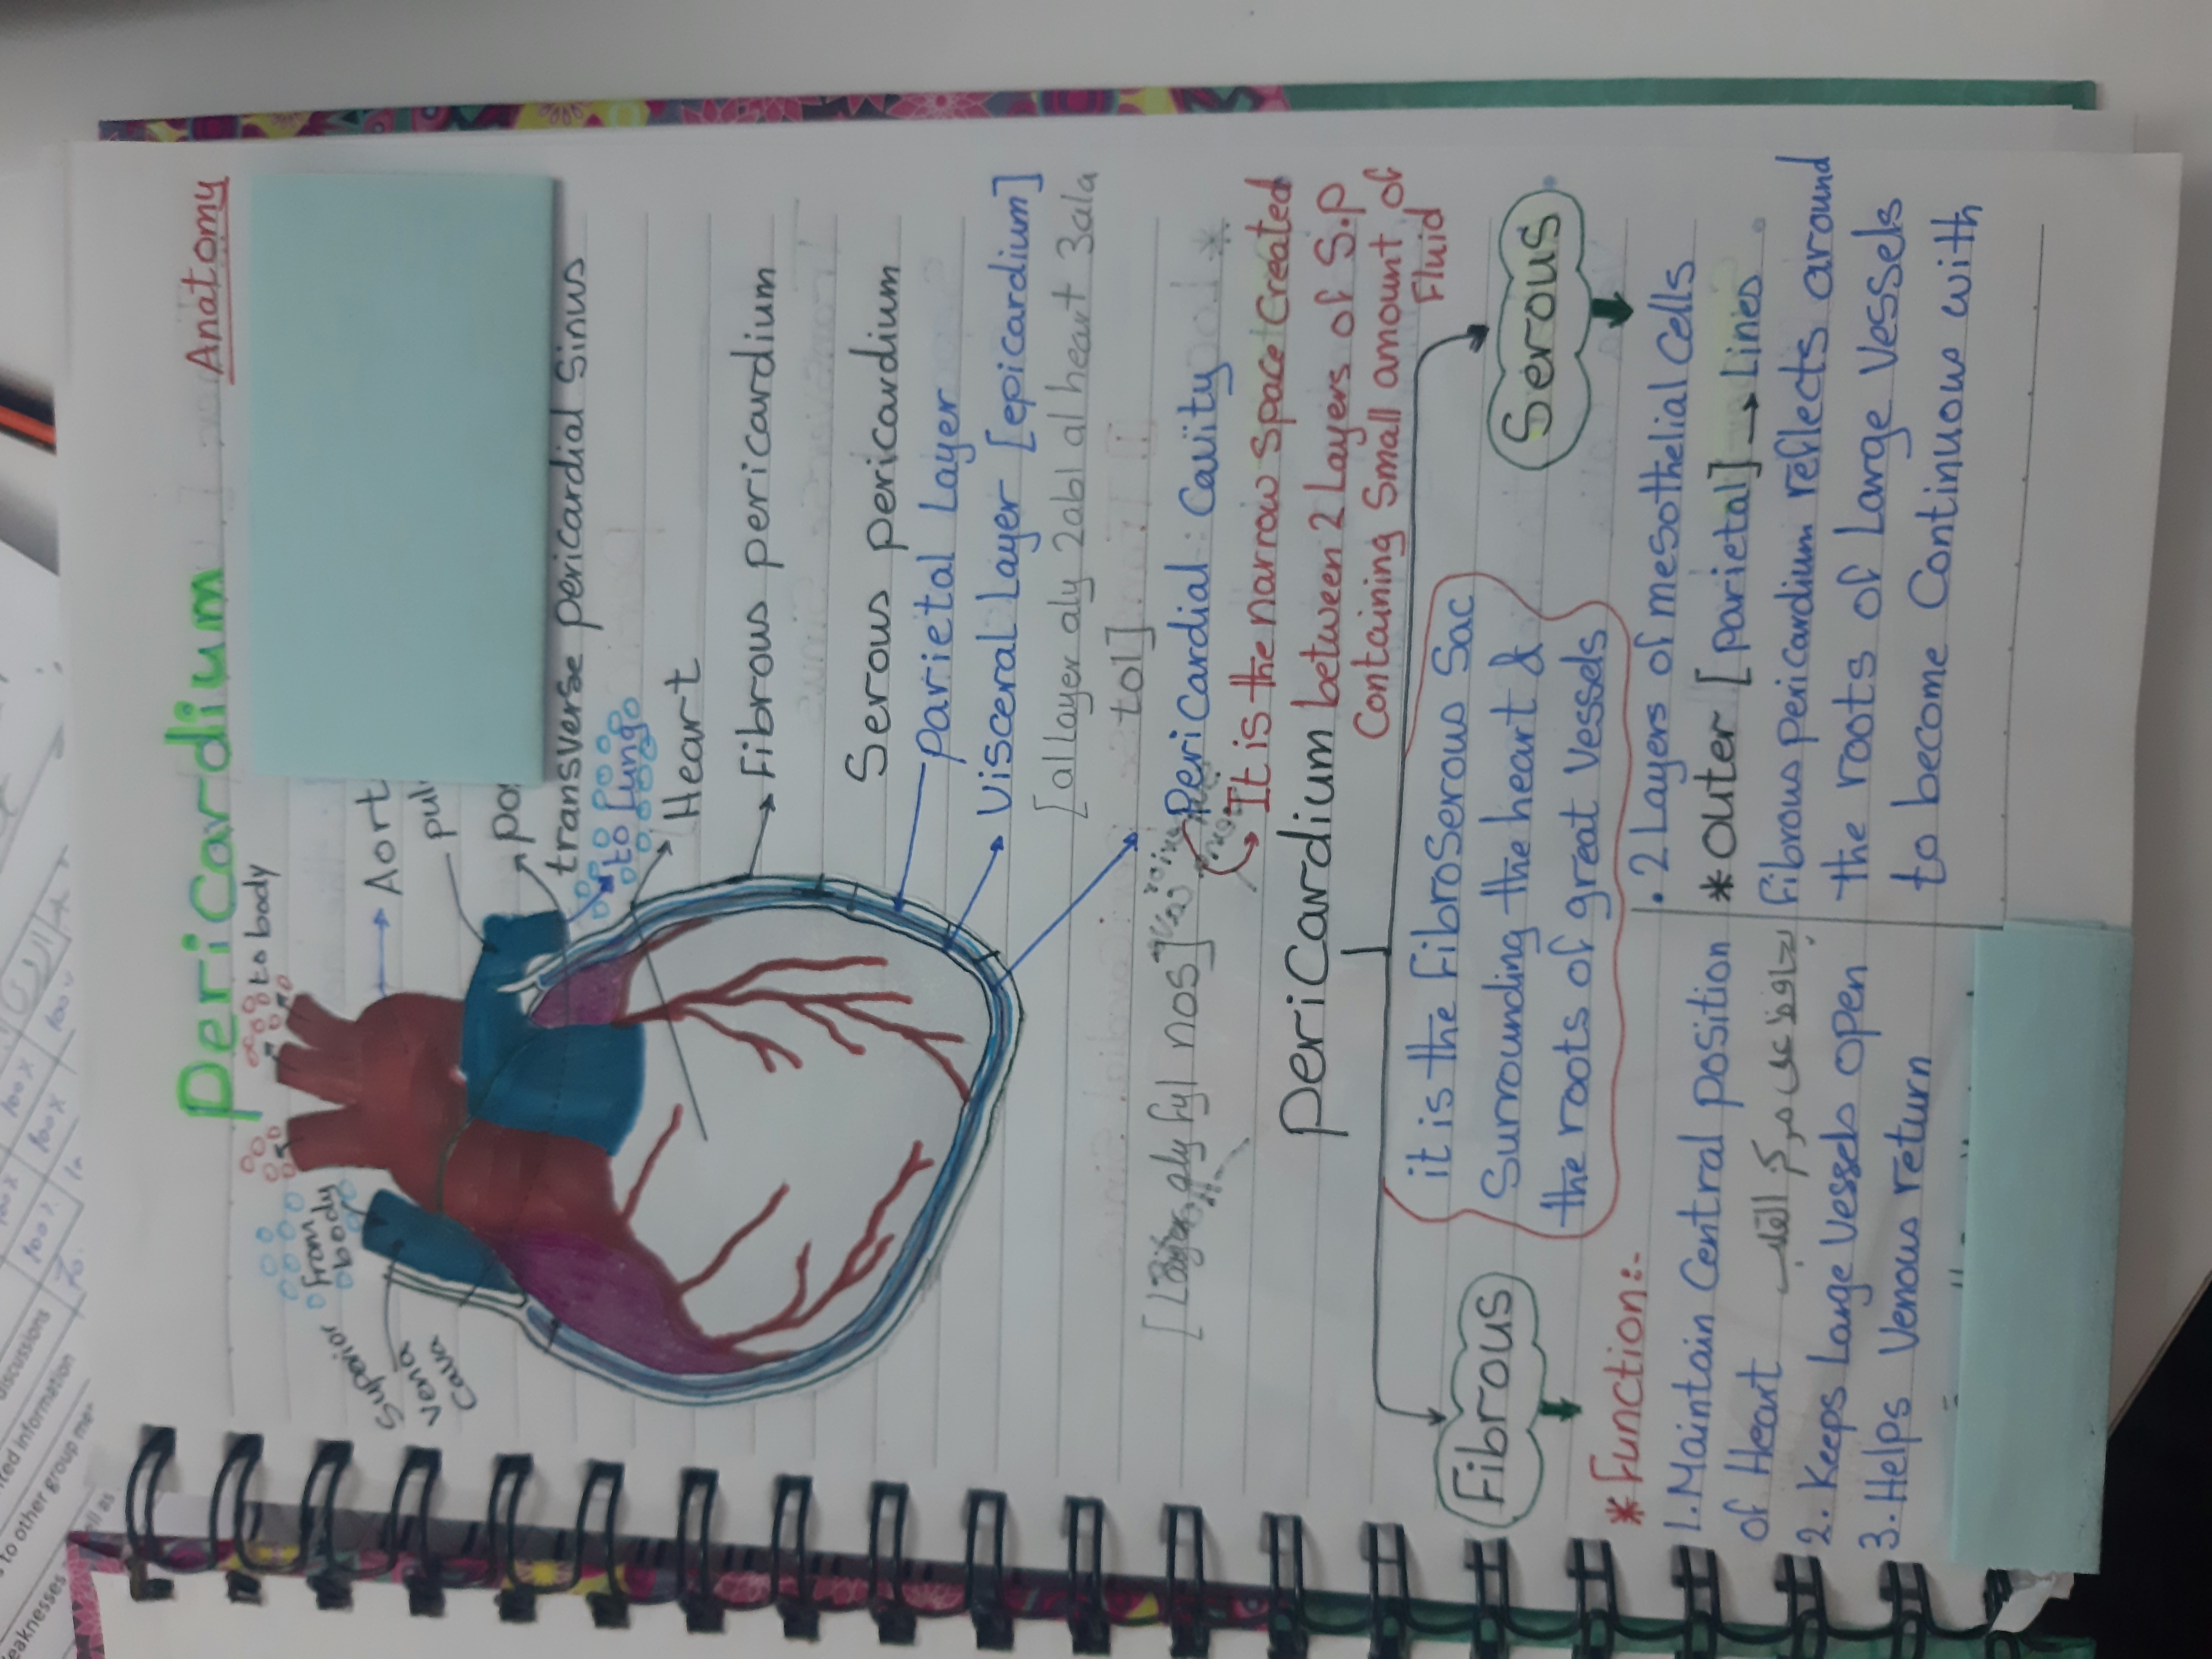 Anatomy
Pericardium
to body
From
body
Superior
Vena
Cava
Aort
pul
po
transverse pericardial Sinus
to lungs
Heart
Fibrous pericardium
Serous pericardium
Parietal Layer
Visceral Layer [epicardium]
[allayer aly 2abl al heart 3ala
tol]
Pericardial Cavity *
[Layer aly fyl nos]
It is the narrow space Created
between 2 Layers of S.P
Containing Small amount of
Fluid
Pericardium
it is the FibroSerous Sac
Surrounding the heart &
the roots of great Vessels
Fibrous
* Function:-
1. Maintain Central position
of Heart يحافظ على مركز القلب
2. Keeps Large Vessels open
3. Helps Venous return
Serous
. 2 Layers of mesothelial Cells
* Outer [parietal] → Lines
Fibrous pericardium reflects around
the roots of Large Vessels
to become Continuow with
discussions
red information
to other group me
eaknesses
ll as